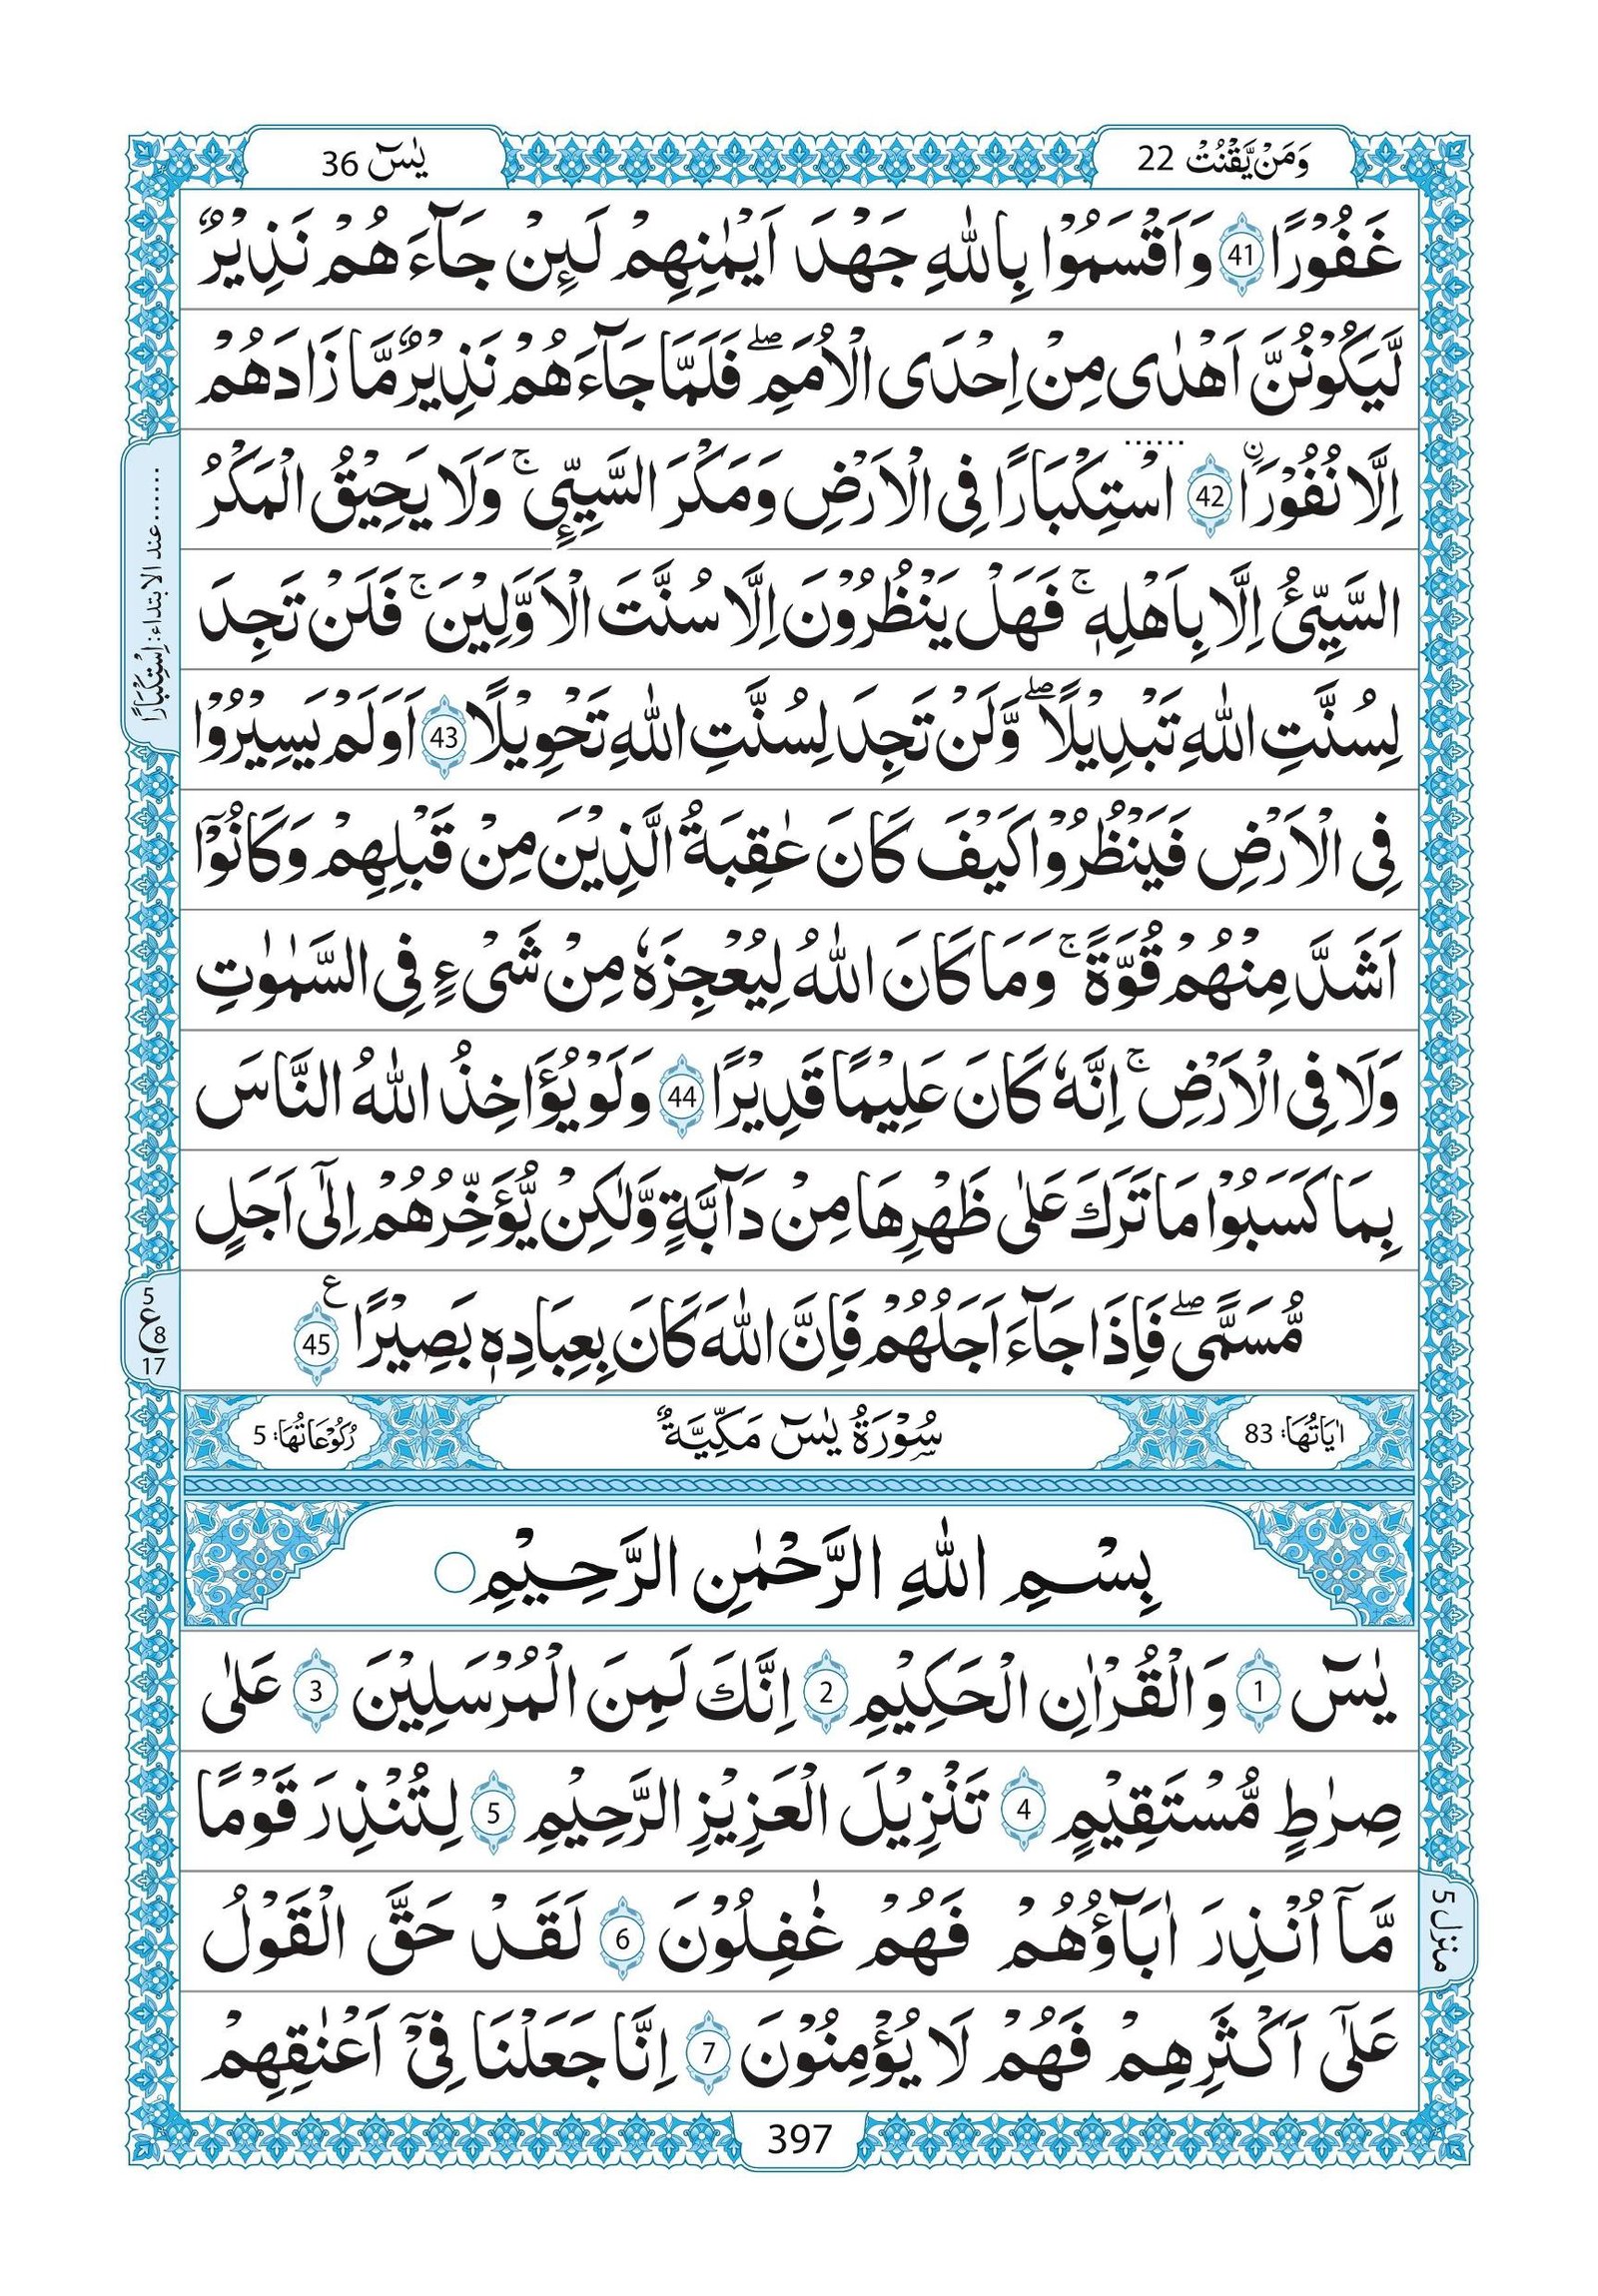 وَمَنْ يَّقْنُتْ 22
يٰسٓ 36
غَفُوْرًا 41 وَاَقْسَمُوْا بِاللّٰهِ جَهْدَ اَيْمٰنِهِمْ لَىِٕنْ جَآءَهُمْ نَذِيْرٌ
لَّيَكُوْنُنَّ اَهْدٰى مِنْ اِحْدَى الْاُمَمِ ۖ فَلَمَّا جَآءَهُمْ نَذِيْرٌ مَّا زَادَهُمْ
اِلَّا نُفُوْرَاۨ 42 اسْتِكْبَارًا فِى الْاَرْضِ وَمَكْرَ السَّيِّئِ ۚ وَلَا يَحِيْقُ الْمَكْرُ
السَّيِّئُ اِلَّا بِاَهْلِهٖ ۚ فَهَلْ يَنْظُرُوْنَ اِلَّا سُنَّتَ الْاَوَّلِيْنَ ۚ فَلَنْ تَجِدَ
لِسُنَّتِ اللّٰهِ تَبْدِيْلًا ۖ وَّلَنْ تَجِدَ لِسُنَّتِ اللّٰهِ تَحْوِيْلًا 43 اَوَلَمْ يَسِيْرُوْا
فِى الْاَرْضِ فَيَنْظُرُوْا كَيْفَ كَانَ عٰقِبَةُ الَّذِيْنَ مِنْ قَبْلِهِمْ وَكَانُوْٓا
اَشَدَّ مِنْهُمْ قُوَّةً ۚ وَمَا كَانَ اللّٰهُ لِيُعْجِزَهٗ مِنْ شَىْءٍ فِى السَّمٰوٰتِ
وَلَا فِى الْاَرْضِ ۚ اِنَّهٗ كَانَ عَلِيْمًا قَدِيْرًا 44 وَلَوْ يُؤَاخِذُ اللّٰهُ النَّاسَ
بِمَا كَسَبُوْا مَا تَرَكَ عَلٰى ظَهْرِهَا مِنْ دَآبَّةٍ وَّلٰكِنْ يُّؤَخِّرُهُمْ اِلٰٓى اَجَلٍ
مُّسَمًّى ۖ فَاِذَا جَآءَ اَجَلُهُمْ فَاِنَّ اللّٰهَ كَانَ بِعِبَادِهٖ بَصِيْرًا ع 45
عند الابتداء: اِسْتِكْبَارًا
5
ع 8
17
اٰيَاتُهَا: 83 سُوْرَةُ يٰسٓ مَكِّيَّةٌ رُكُوْعَاتُهَا: 5
بِسْمِ اللّٰهِ الرَّحْمٰنِ الرَّحِيْمِ
يٰسٓ 1 وَالْقُرْاٰنِ الْحَكِيْمِ 2 اِنَّكَ لَمِنَ الْمُرْسَلِيْنَ 3 عَلٰى
صِرٰطٍ مُّسْتَقِيْمٍ 4 تَنْزِيْلَ الْعَزِيْزِ الرَّحِيْمِ 5 لِتُنْذِرَ قَوْمًا
مَّآ اُنْذِرَ اٰبَآؤُهُمْ فَهُمْ غٰفِلُوْنَ 6 لَقَدْ حَقَّ الْقَوْلُ
عَلٰٓى اَكْثَرِهِمْ فَهُمْ لَا يُؤْمِنُوْنَ 7 اِنَّا جَعَلْنَا فِىْٓ اَعْنٰقِهِمْ
منزل 5
397